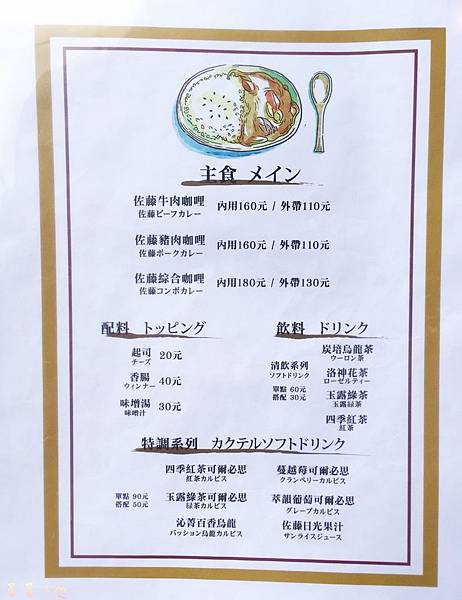 主食 メイン
佐藤牛肉咖哩 內用160元 / 外帶110元
佐藤ビーフカレー
佐藤豬肉咖哩 內用160元 / 外帶110元
佐藤ポークカレー
佐藤綜合咖哩 內用180元 / 外帶130元
佐藤コンボカレー
配料 トッピング
起司 20元
チーズ
香腸 40元
ウィンナー
味增湯 30元
味增汁
飲料 ドリンク
清飲系列
ソフトドリンク
單點 60元
搭配 30元
炭培烏龍茶
ウーロン茶
洛神花茶
ローゼルティー
玉露綠茶
玉露緑茶
四季紅茶
紅茶
特調系列 カクテルソフトドリンク
單點 90元
搭配 50元
四季紅茶可爾必思
紅茶カルピス
玉露綠茶可爾必思
緑茶カルピス
沁菁百香烏龍
パッション烏龍カルピス
蔓越莓可爾必思
クランベリーカルピス
萃韻葡萄可爾必思
グレープカルピス
佐藤日光果汁
サンライスジュース